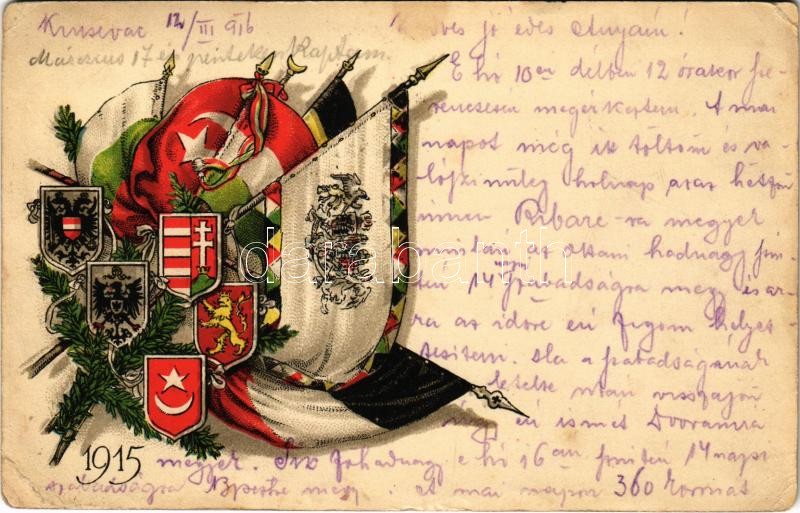 Krusevac 12/III 916
Március 17 én pénteken kaptam.
Édes jó édes Anyám!
E hó 10 én délben 12 órakor sze-
rencsésen megérkeztem. A mai
napot még itt töltöm és va-
lószinüleg holnap azaz hétfőn
innen Ribare-ra megyek
miután az ottani hadnagy szin-
tén 14 napi szabadságra megy és ar-
ra az időre én fogom helyet-
tesitem. Ha a szabadságának
letelte után visszajön
úgy én ismét Dvoranra
megyek. főhadnagy e hó 16 án szintén 14 napi
szabadságra Bpestre megy. A mai napon 360 Koronát
1915
darabanth